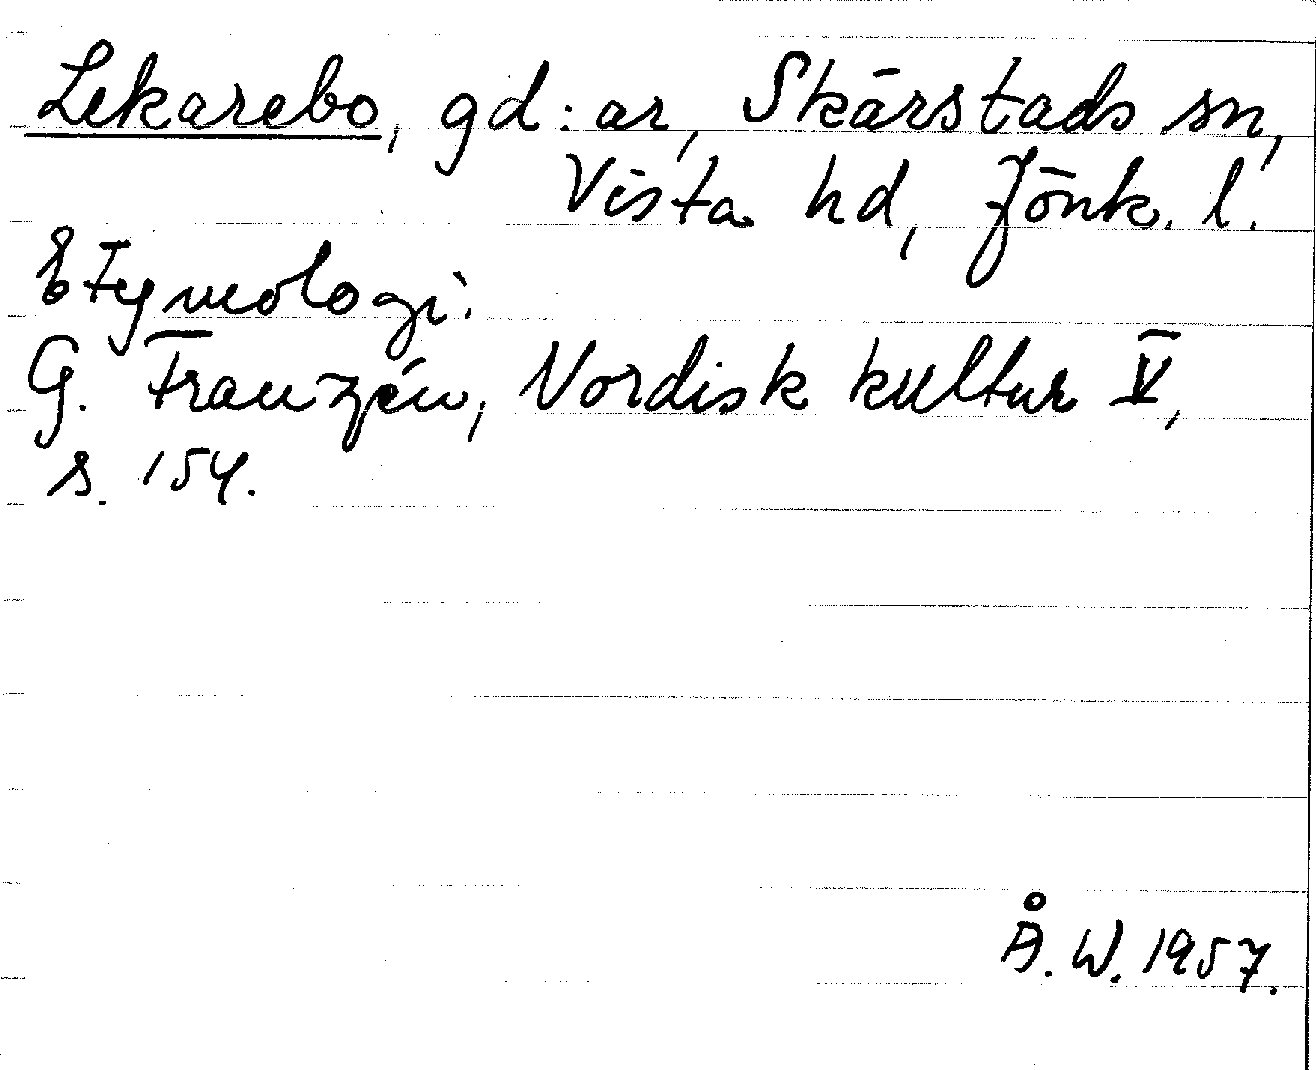 Lekarebo, gd:ar, Skärstads sn,
Vista hd, Jönk. l.
Etymologi.
G. Franzén, Nordisk kultur V,
s. 154.
Å. W. 1957.